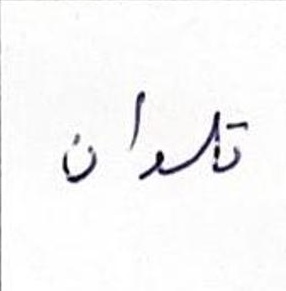 تلوان